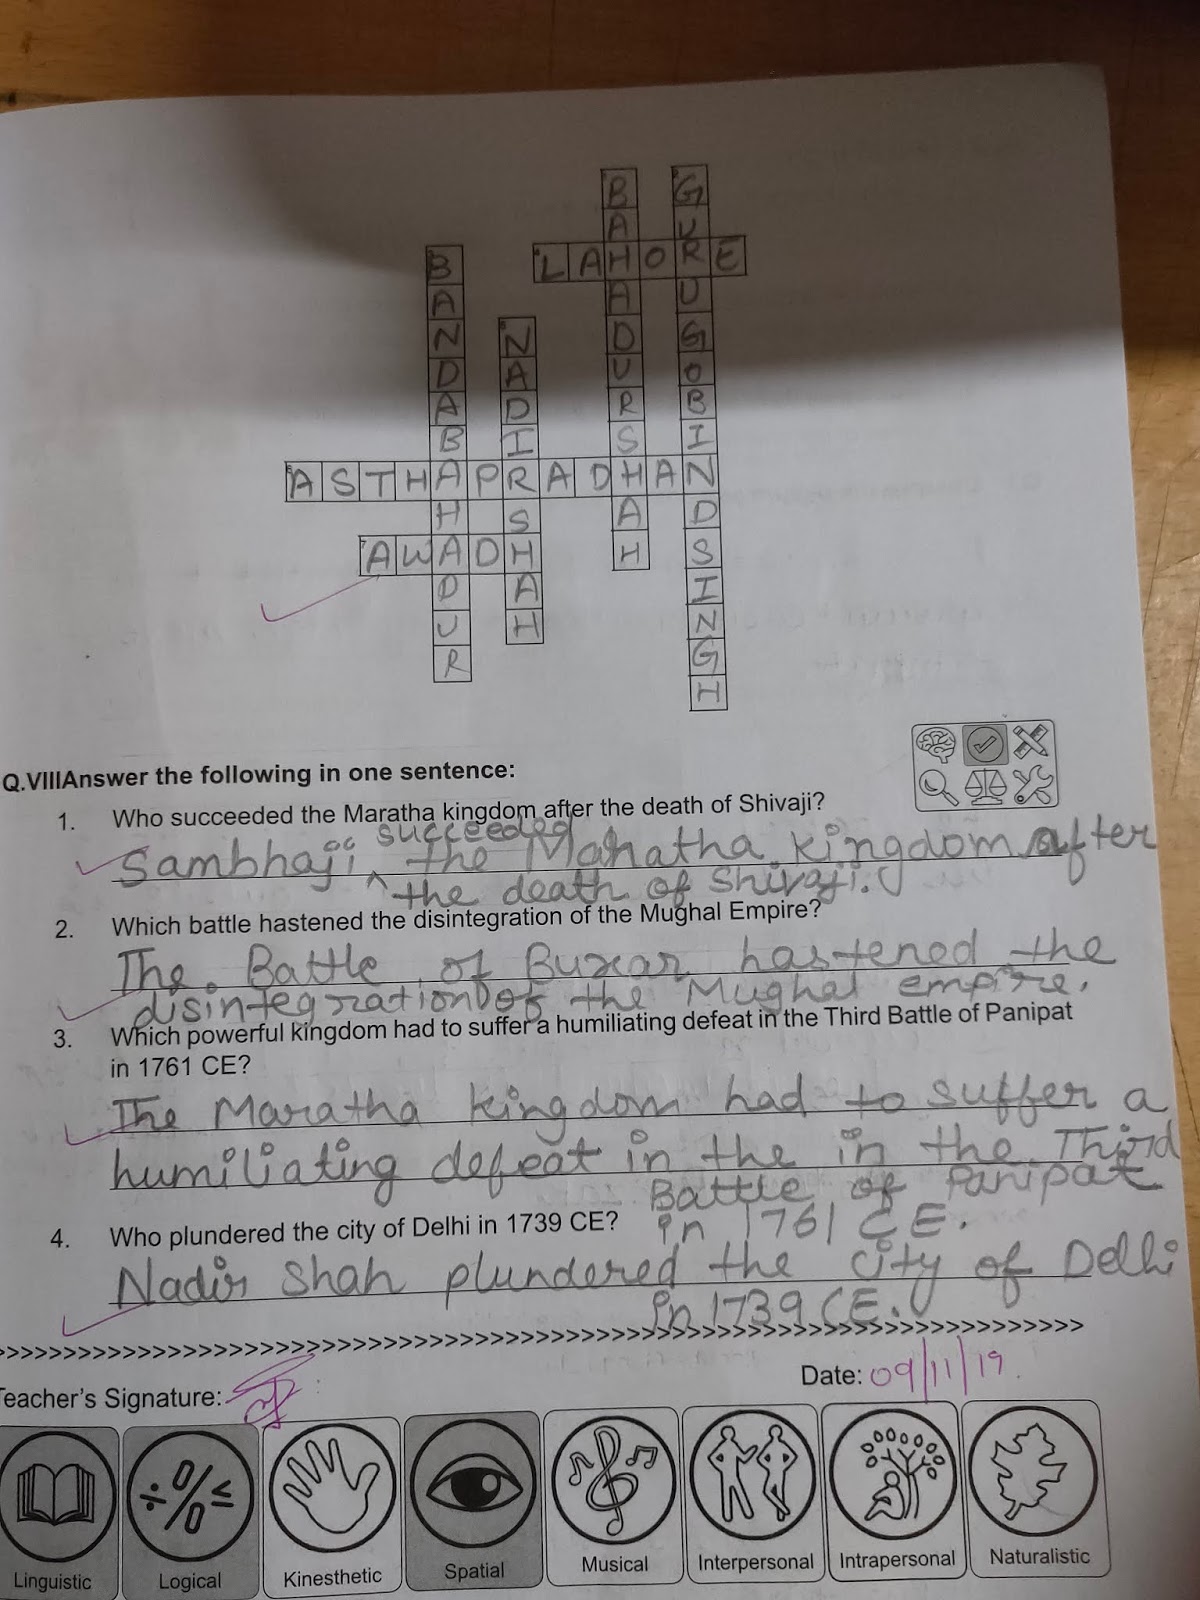 BAHADURSHAH
GURUGOBINDSINGH
LAHORE
BANDABAHADUR
NADIRSHAH
ASTHAPRADHAN
AWADH
Q.VIIIAnswer the following in one sentence:
1. Who succeeded the Maratha kingdom after the death of Shivaji?
succeeded
Sambhaji ^ the Maratha kingdom after
the death of Shivaji.
2. Which battle hastened the disintegration of the Mughal Empire?
The Battle of Buxar hastened the
disintegration of the Mughal empire.
3. Which powerful kingdom had to suffer a humiliating defeat in the Third Battle of Panipat
in 1761 CE?
The Maratha kingdom had to suffer a
humiliating defeat in the in the Third
Battle of Panipat
in 1761 CE.
4. Who plundered the city of Delhi in 1739 CE?
Nadir Shah plundered the city of Delhi
in 1739 CE.
>>>>>>>>>>>>>>>>>>>>>>>>>>>>>>>>>>>>>>>>>>>>>>>>>>>>>>>>>>>>>>>>>>>>>>>>
Teacher's Signature:
Date: 09/11/19.
Linguistic
Logical
Kinesthetic
Spatial
Musical
Interpersonal
Intrapersonal
Naturalistic